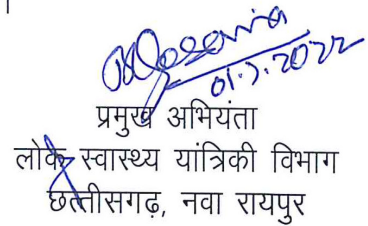 01.7.2022
प्रमुख अभियंता
लोक स्वास्थ्य यांत्रिकी विभाग
छत्तीसगढ़, नवा रायपुर